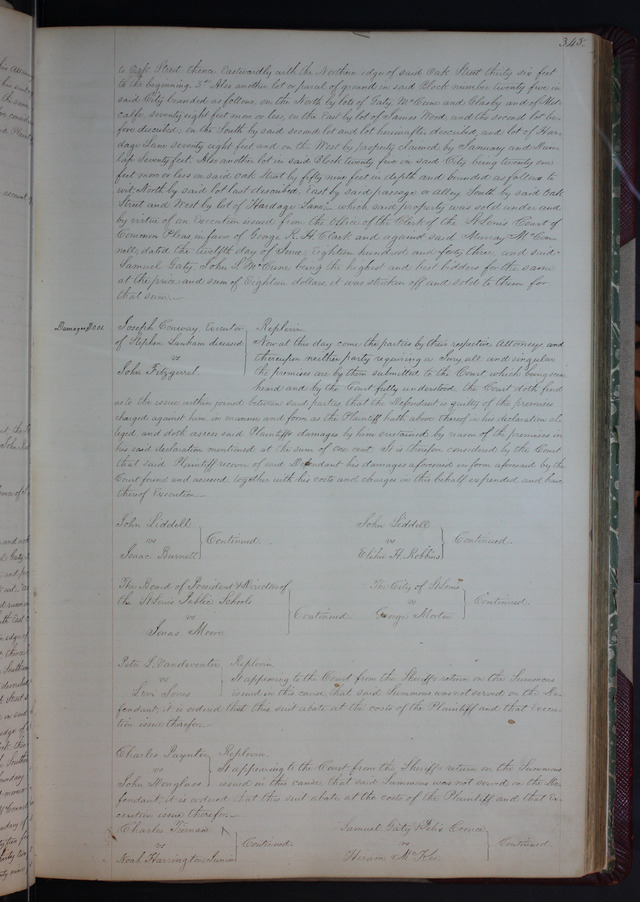 343.
to Oak Street thence Eastwardly with the Northern edge of said Oak Street thirty six feet
to the beginning. 3rd Also another lot or parcel of ground in said Block number twenty five in
said City bounded as follows, on the North by lots of Gaty McCune and Glasby and of
seventy eight feet more or less, on the East by lot of James Wood, and the second lot be-
fore described; on the South by said second lot and lot hereinafter described, and lot of Har-
dage Lane seventy eight feet and on the West by property claimed by January and
seventy feet. Also another lot in said Block twenty five in said City being twenty one
feet more or less on said Oak Street by fifty nine feet in depth and bounded as follows to
wit: North by said lot last described, East by said passage or alley South by said Oak
Street and West by lot of Hardage Lane, which said property was sold under and
by virtue of an Execution issued from the Office of the Clerk of the St. Louis Court of
Common Pleas in favor of George R. H. Clark and against said Murray McCon-
nell, dated the twelfth day of June, Eighteen hundred and forty three, and said
Samuel Gaty John S. McCune being the highest and best bidders for the same
at the price and sum of Eighteen dollars, it was stricken off and sold to them for
that sum.
Damages $0.01.
Joseph Conway, Executor
of Stephen Lanham deceased
vs
John Fitzgerrel
Replevin
Now at this day come the parties by their respective Attorneys and
thereupon neither party requiring a Jury, all and singular
the premises are by them submitted to the Court which being seen
heard and by the Court fully understood the Court doth find
as to the issue within joined between said parties, that the Defendant is guilty of the premises
charged against him in manner and form as the Plaintiff hath above thereof in his declaration al-
leged, and doth assess said Plaintiffs damages by him sustained by reason of the premises in
his said declaration mentioned at the sum of one cent. It is therefore considered by the Court
that said Plaintiff recover of said Defendant his damages aforesaid in form aforesaid by the
Court found and assessed, together with his costs and charges in this behalf expended and have
thereof Execution.
John Liddell
vs
Isaac Burnett
Continued.
John Liddell
vs
Elihu H. Robbins
Continued.
The Board of President & Directors of
the St. Louis Public Schools
vs
Jonas Moore
Continued
The City of St. Louis
vs
George Morton
Continued.
Peter L. Vandeventer
vs
Levi Jones
Replevin
It appearing to the Court from the Sheriffs return on the Summons
issued in this cause, that said Summons was not served on the De-
fendant, it is ordered that this suit abate at the costs of the Plaintiff and that Execu-
tion issue therefor.
Charles Paynter
vs
John Menglass
Replevin.
It appearing to the Court from the Sheriffs return on the Summons
issued in this cause, that said Summons was not served on the De-
fendant, it is ordered that this suit abate at the costs of the Plaintiff and that Ex-
ecution issue therefor.
Charles Tiernan
vs
Noah Harrington
Continued.
Samuel Gaty & Felix Coonce
vs
Hiram McKee
Continued